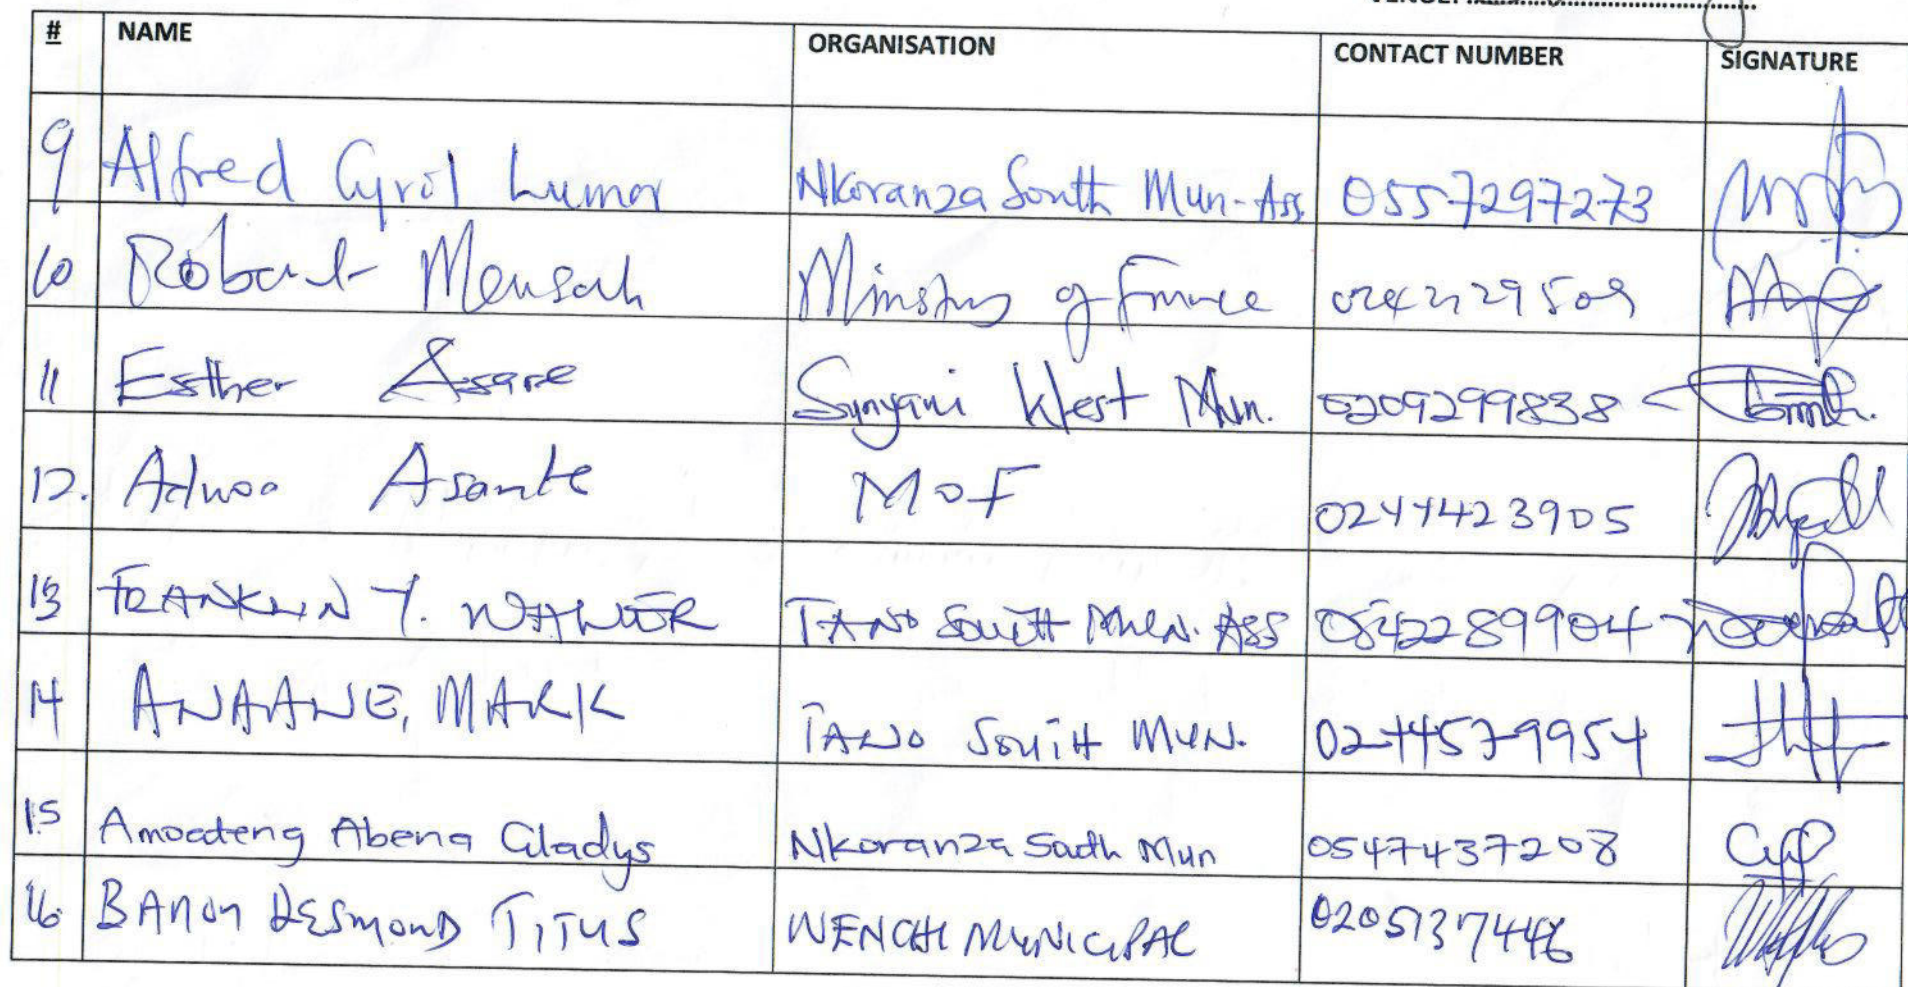 # NAME ORGANISATION CONTACT NUMBER SIGNATURE
9 Alfred Cyril Lumor Nkoranza South Mun-Ass. 0557297273
10 Robert Mensah Ministry of Finance
11 Esther Asare Sunyani West Mun. 0209299838
12. Adwoa Asante MOF 0244423905
13 FRANKLIN Y. TANO SOUTH MUN. ASS 0542289904
14 ANAANE, MARK TANO SOUTH MUN. 0244579954
15 Amoateng Abena Gladys Nkoranza South Mun 0547437208
16. DESMOND TITUS WENCHI MUNICIPAL